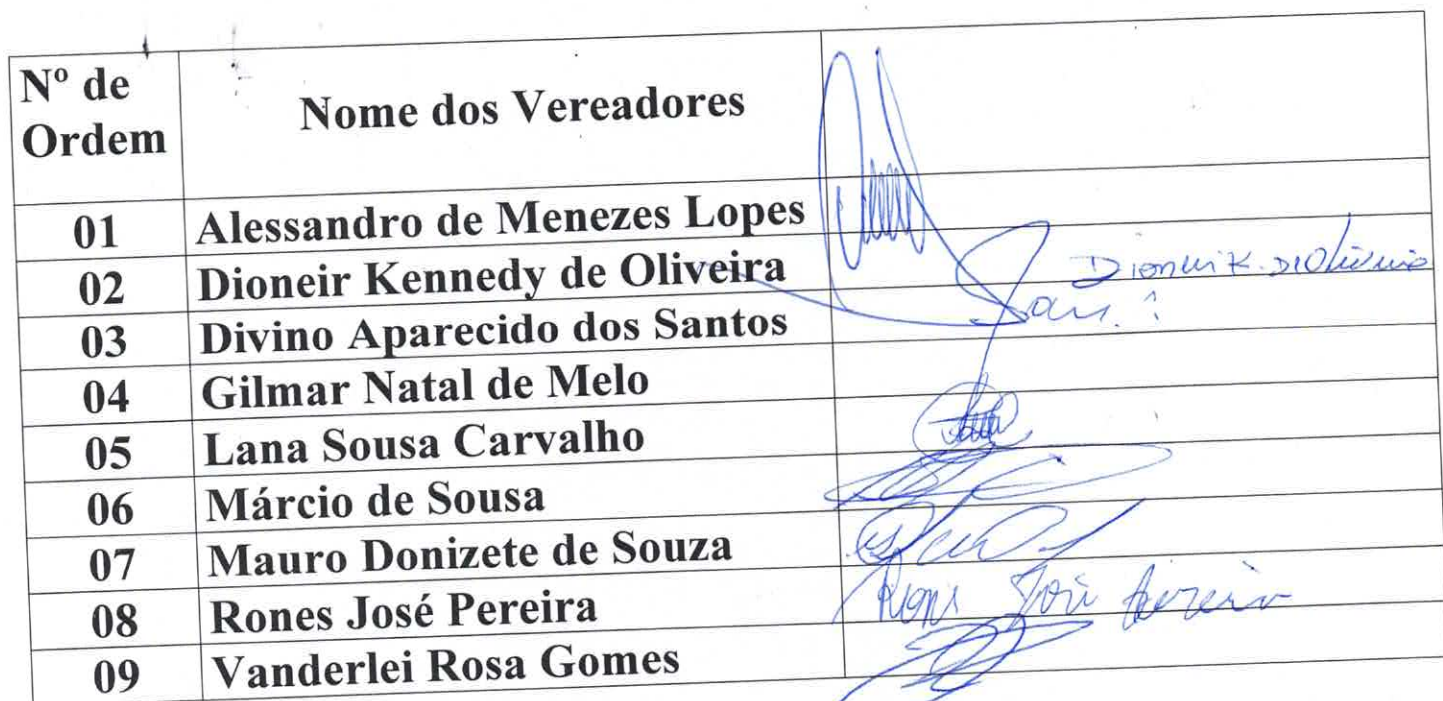 Nº de
Ordem
Nome dos Vereadores
01 Alessandro de Menezes Lopes
02 Dioneir Kennedy de Oliveira Dioneir K. D Oliveira
03 Divino Aparecido dos Santos
04 Gilmar Natal de Melo
05 Lana Sousa Carvalho
06 Márcio de Sousa
07 Mauro Donizete de Souza
08 Rones José Pereira Rones José Pereira
09 Vanderlei Rosa Gomes